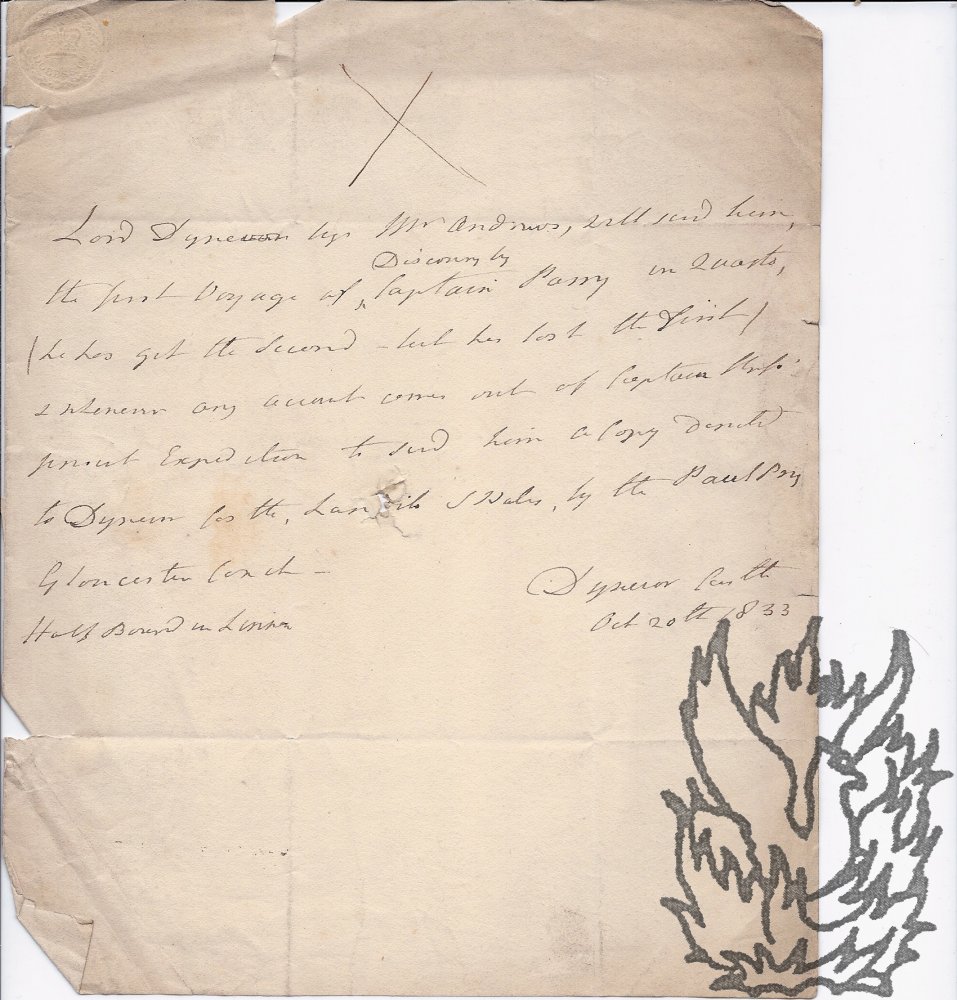 Lord Dynevor begs Mr Andrews, will send him,
Discovery by
the first Voyage of Captain Parry in Quarto,
(he has got the Second - but has lost the First)
& whenever any account comes out of Captain
present Expedition to send him a Copy Directed
to Dynevor Castle, S Wales, by the Paul Pry
Gloucester Coach -
Dynevor Castle
Half Bound in
Oct 20th 1833